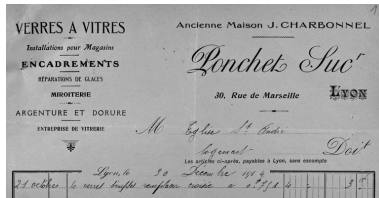 1
VERRES A VITRES
Installations pour Magasins
ENCADREMENTS
RÉPARATIONS DE GLACES
MIROITERIE
ARGENTURE ET DORURE
ENTREPRISE DE VITRERIE
Ancienne Maison J. CHARBONNEL
Ponchet Sucr
30, Rue de Marseille LYON
M Eglise St André
logement Doit
Les articles ci-après, payables à Lyon, sans escompte
Lyon, le 30 Décembre 1904
21 octobre 4